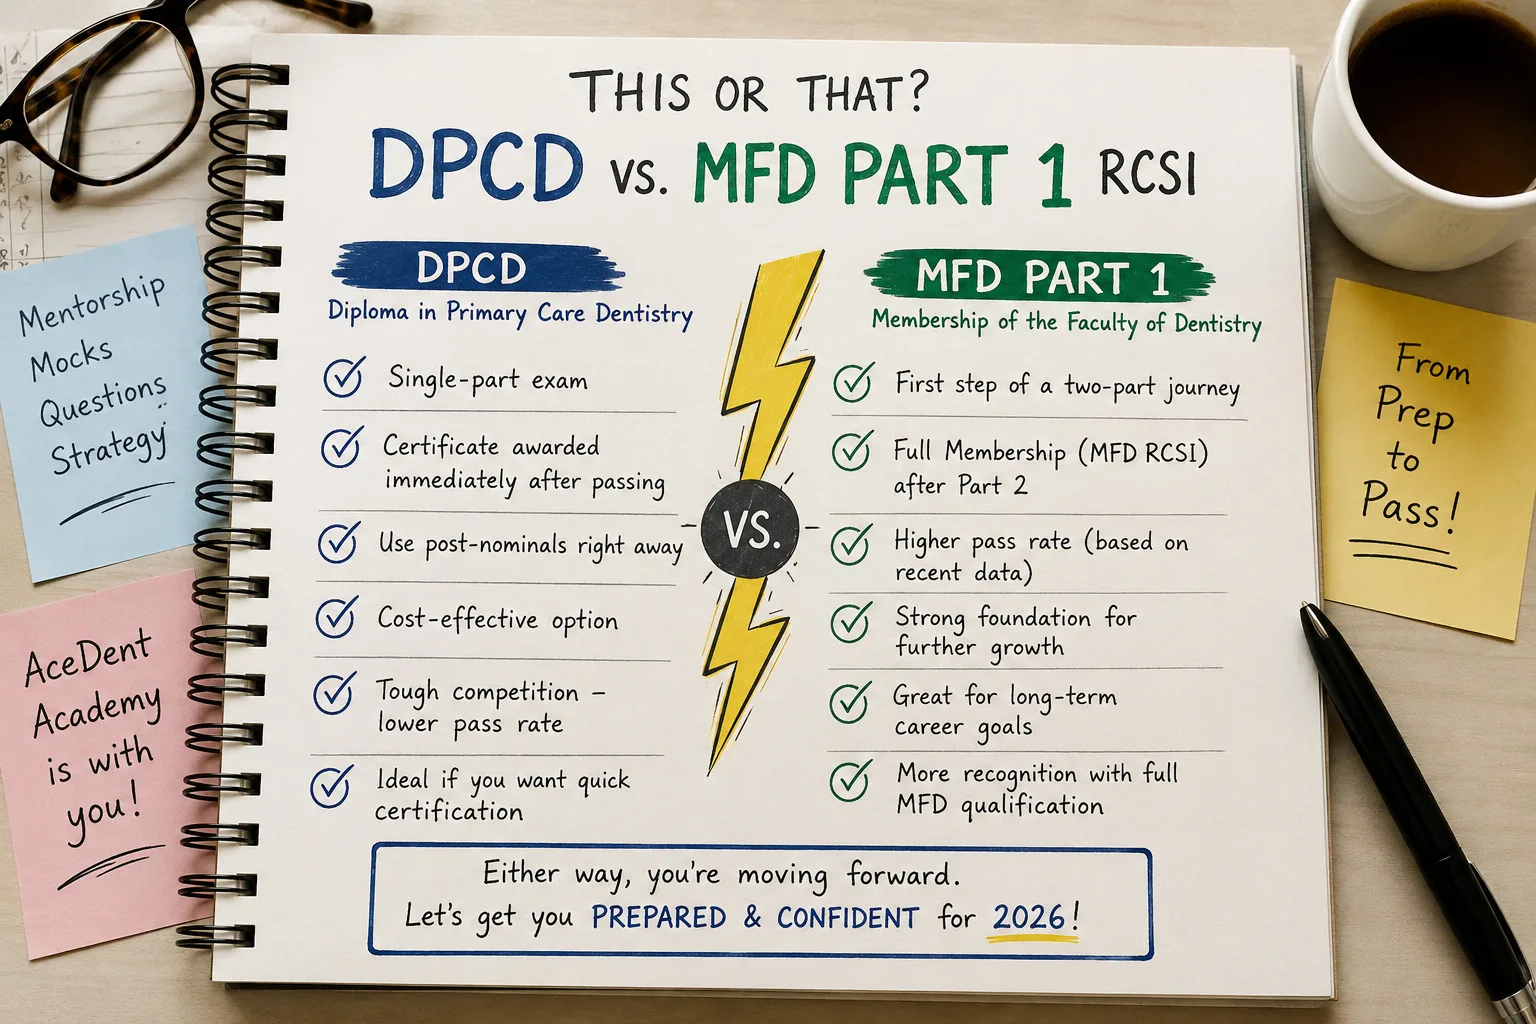 THIS OR THAT?
DPCD vs. MFD PART 1 RCSI
DPCD
Diploma in Primary Care Dentistry
Single-part exam
Certificate awarded
immediately after passing
Use post-nominals right away
Cost-effective option
Tough competition –
lower pass rate
Ideal if you want quick
certification
VS.
MFD PART 1
Membership of the Faculty of Dentistry
First step of a two-part journey
Full Membership (MFD RCSI)
after Part 2
Higher pass rate (based on
recent data)
Strong foundation for
further growth
Great for long-term
career goals
More recognition with full
MFD qualification
Either way, you're moving forward.
Let's get you PREPARED & CONFIDENT for 2026!
Mentorship
Mocks
Questions
Strategy
AceDent
Academy
is with
you!
From
Prep
to
Pass!